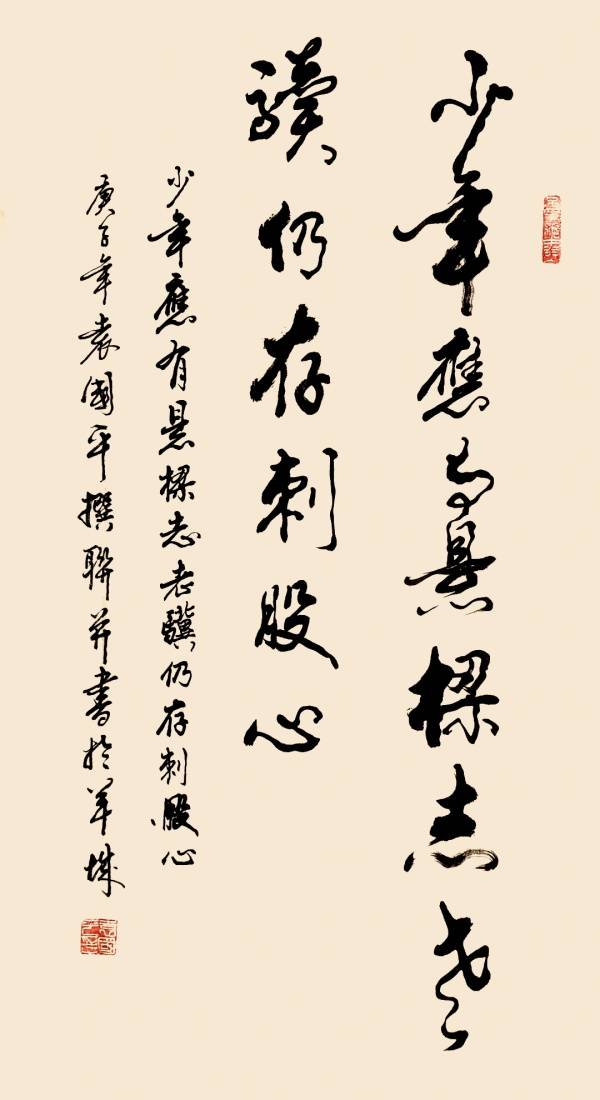 少年應有懸樑志老
驥仍存刺股心
少年應有懸樑志老驥仍存刺股心
庚子年袁國平撰聯并書於羊城